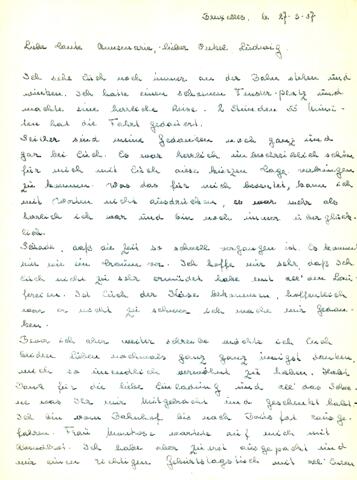 Bruxelles, le 27-3-87
Liebe Tante Annemarie, lieber Onkel Ludwig.
Ich sehe Euch noch immer an der Bahn stehen und
winken. Ich hatte einen schönen Fenster-platz und
machte eine herrliche Reise. 2 Stunden 55 Minü-
ten hat die Fahrt gedauert.
Seither sind meine Gedanken noch ganz und
gar bei Euch. Es war herrlich unbeschreiblich schön
für mich mit Euch diese kurzen Tage verbringen
zu können. Was das für mich bedeutet, kann ich
mit Worten nicht ausdrücken, es war mehr als
herrlich ich war und bin noch immer überglück-
lich.
Schade, daß die Zeit so schnell vergangen ist. Es kommt
mir wie ein Traum vor. Ich hoffe nur sehr, daß ich
Euch nicht zu sehr ermüdet habe mit all' den Lauf-
ereien. Ist Euch der Käse bekommen, hoffentlich
war er nicht zu schwer ich mache mir Gedan-
ken.
Bevor ich aber weiter schreibe möchte ich Euch
beiden lieben nochmals ganz ganz innigst danken,
mich so unendlich verwöhnt zu haben. Habt
Dank für die liebe Einladung und all' das Schö-
ne was Ihr mir mitgebracht und geschenkt habt.
Ich bin vom Bahnhof bis nach Haus gefahren.
Frau wartete auf mich mit
Ich habe aber zuerst ausgepackt und
mir einen richtigen Geburtstagstisch mit all' Euren